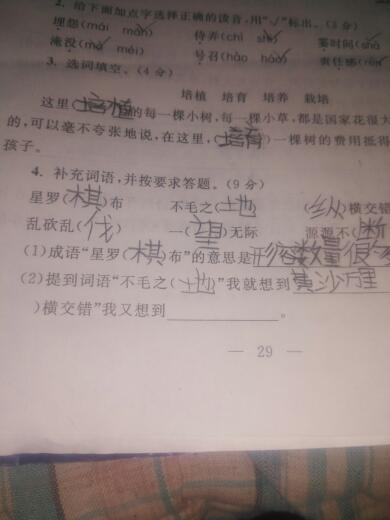 2. 给下面加点字选择正确的读音,用“√”标出。(3分)
埋怨(mái mán) 侍弄(chì shì) 霎时间(shà
淹没(mò méi) 号召(hào háo) 责任感(rèn
3. 选词填空。(4分)
培植 培育 培养 栽培
这里(培植)的每一棵小树,每一棵小草,都是国家花很大
的,可以毫不夸张地说,在这里,(培育)一棵树的费用抵得
孩子。
4. 补充词语,并按要求答题。(9分)
星罗(棋)布 不毛之(地) (纵)横交错
乱砍乱(伐) 一(望)无际 源源不(断
(1)成语“星罗(棋)布”的意思是形容数量很多
(2)提到词语“不毛之(地)”我就想到黄沙万里
)横交错”我又想到 。
— 29 —